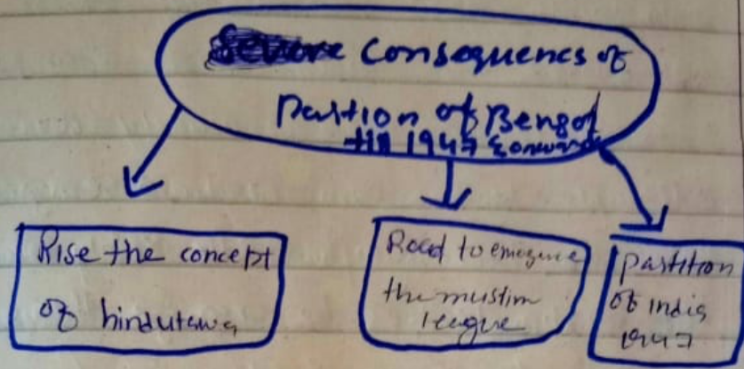 Consequences of
Partion of Bengal
till 1947 & onwards
Rise the concept
of hindutawa
Road to emegence
the muslim
league
partition
of India
1947